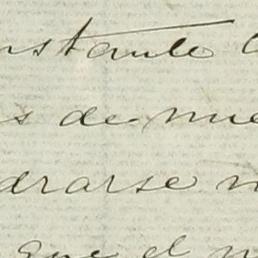 nstante
s de nue
drarse
que el